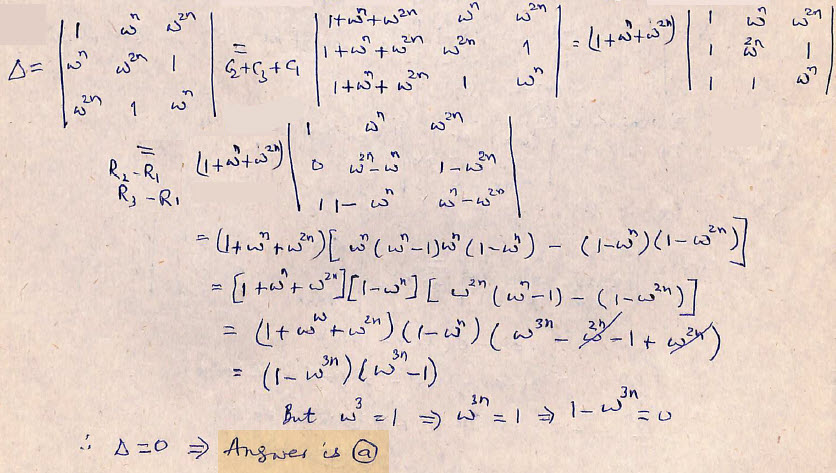 Δ = | 1 ω^n ω^2n ; ω^n ω^2n 1 ; ω^2n 1 ω^n | = C2+C3+C1 | 1+ω^n+ω^2n ω^n ω^2n ; 1+ω^n+ω^2n ω^2n 1 ; 1+ω^n+ω^2n 1 ω^n | = (1+ω^n+ω^2n) | 1 ω^n ω^2n ; 1 ω^2n 1 ; 1 1 ω^n |
= R2-R1 R3-R1 (1+ω^n+ω^2n) | 1 ω^n ω^2n ; 0 ω^2n-ω^n 1-ω^2n ; 1 1-ω^n ω^n-ω^2n |
= (1+ω^n+ω^2n) [ω^n(ω^n-1)ω^n(1-ω^n) - (1-ω^n)(1-ω^2n)]
= [1+ω^n+ω^2n][1-ω^n][ω^2n(ω^n-1) - (1-ω^2n)]
= (1+ω^ω+ω^2n)(1-ω^n)(ω^3n - ω^2n - 1 + ω^2n)
= (1-ω^3n)(ω^3n-1)
But ω^3 = 1 ⇒ ω^3n = 1 ⇒ 1-ω^3n = 0
∴ Δ=0 ⇒ Answer is (a)